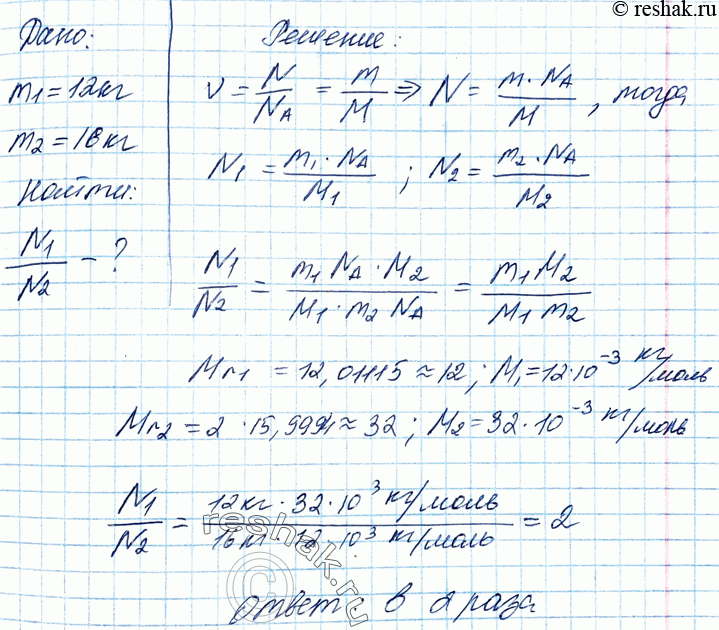 © reshak.ru
Дано:
m1=12кг
m2=16кг
Найти:
N1/N2 - ?
Решение:
ν = N/NA = m/M ⇒ N = m·NA/M, тогда
N1 = m1·NA/M1 ; N2 = m2·NA/M2
N1/N2 = m1 NA·M2/M1·m2 NA = m1 M2/M1 m2
Mr1 = 12,01115 ≈ 12; M1=12·10⁻³ кг/моль
Mr2 = 2·15,9994 ≈ 32; M2=32·10⁻³ кг/моль
N1/N2 = 12кг·32·10³ кг/моль/16кг·12·10³ кг/моль = 2
reshak.ru
©
ответ в 2 раза